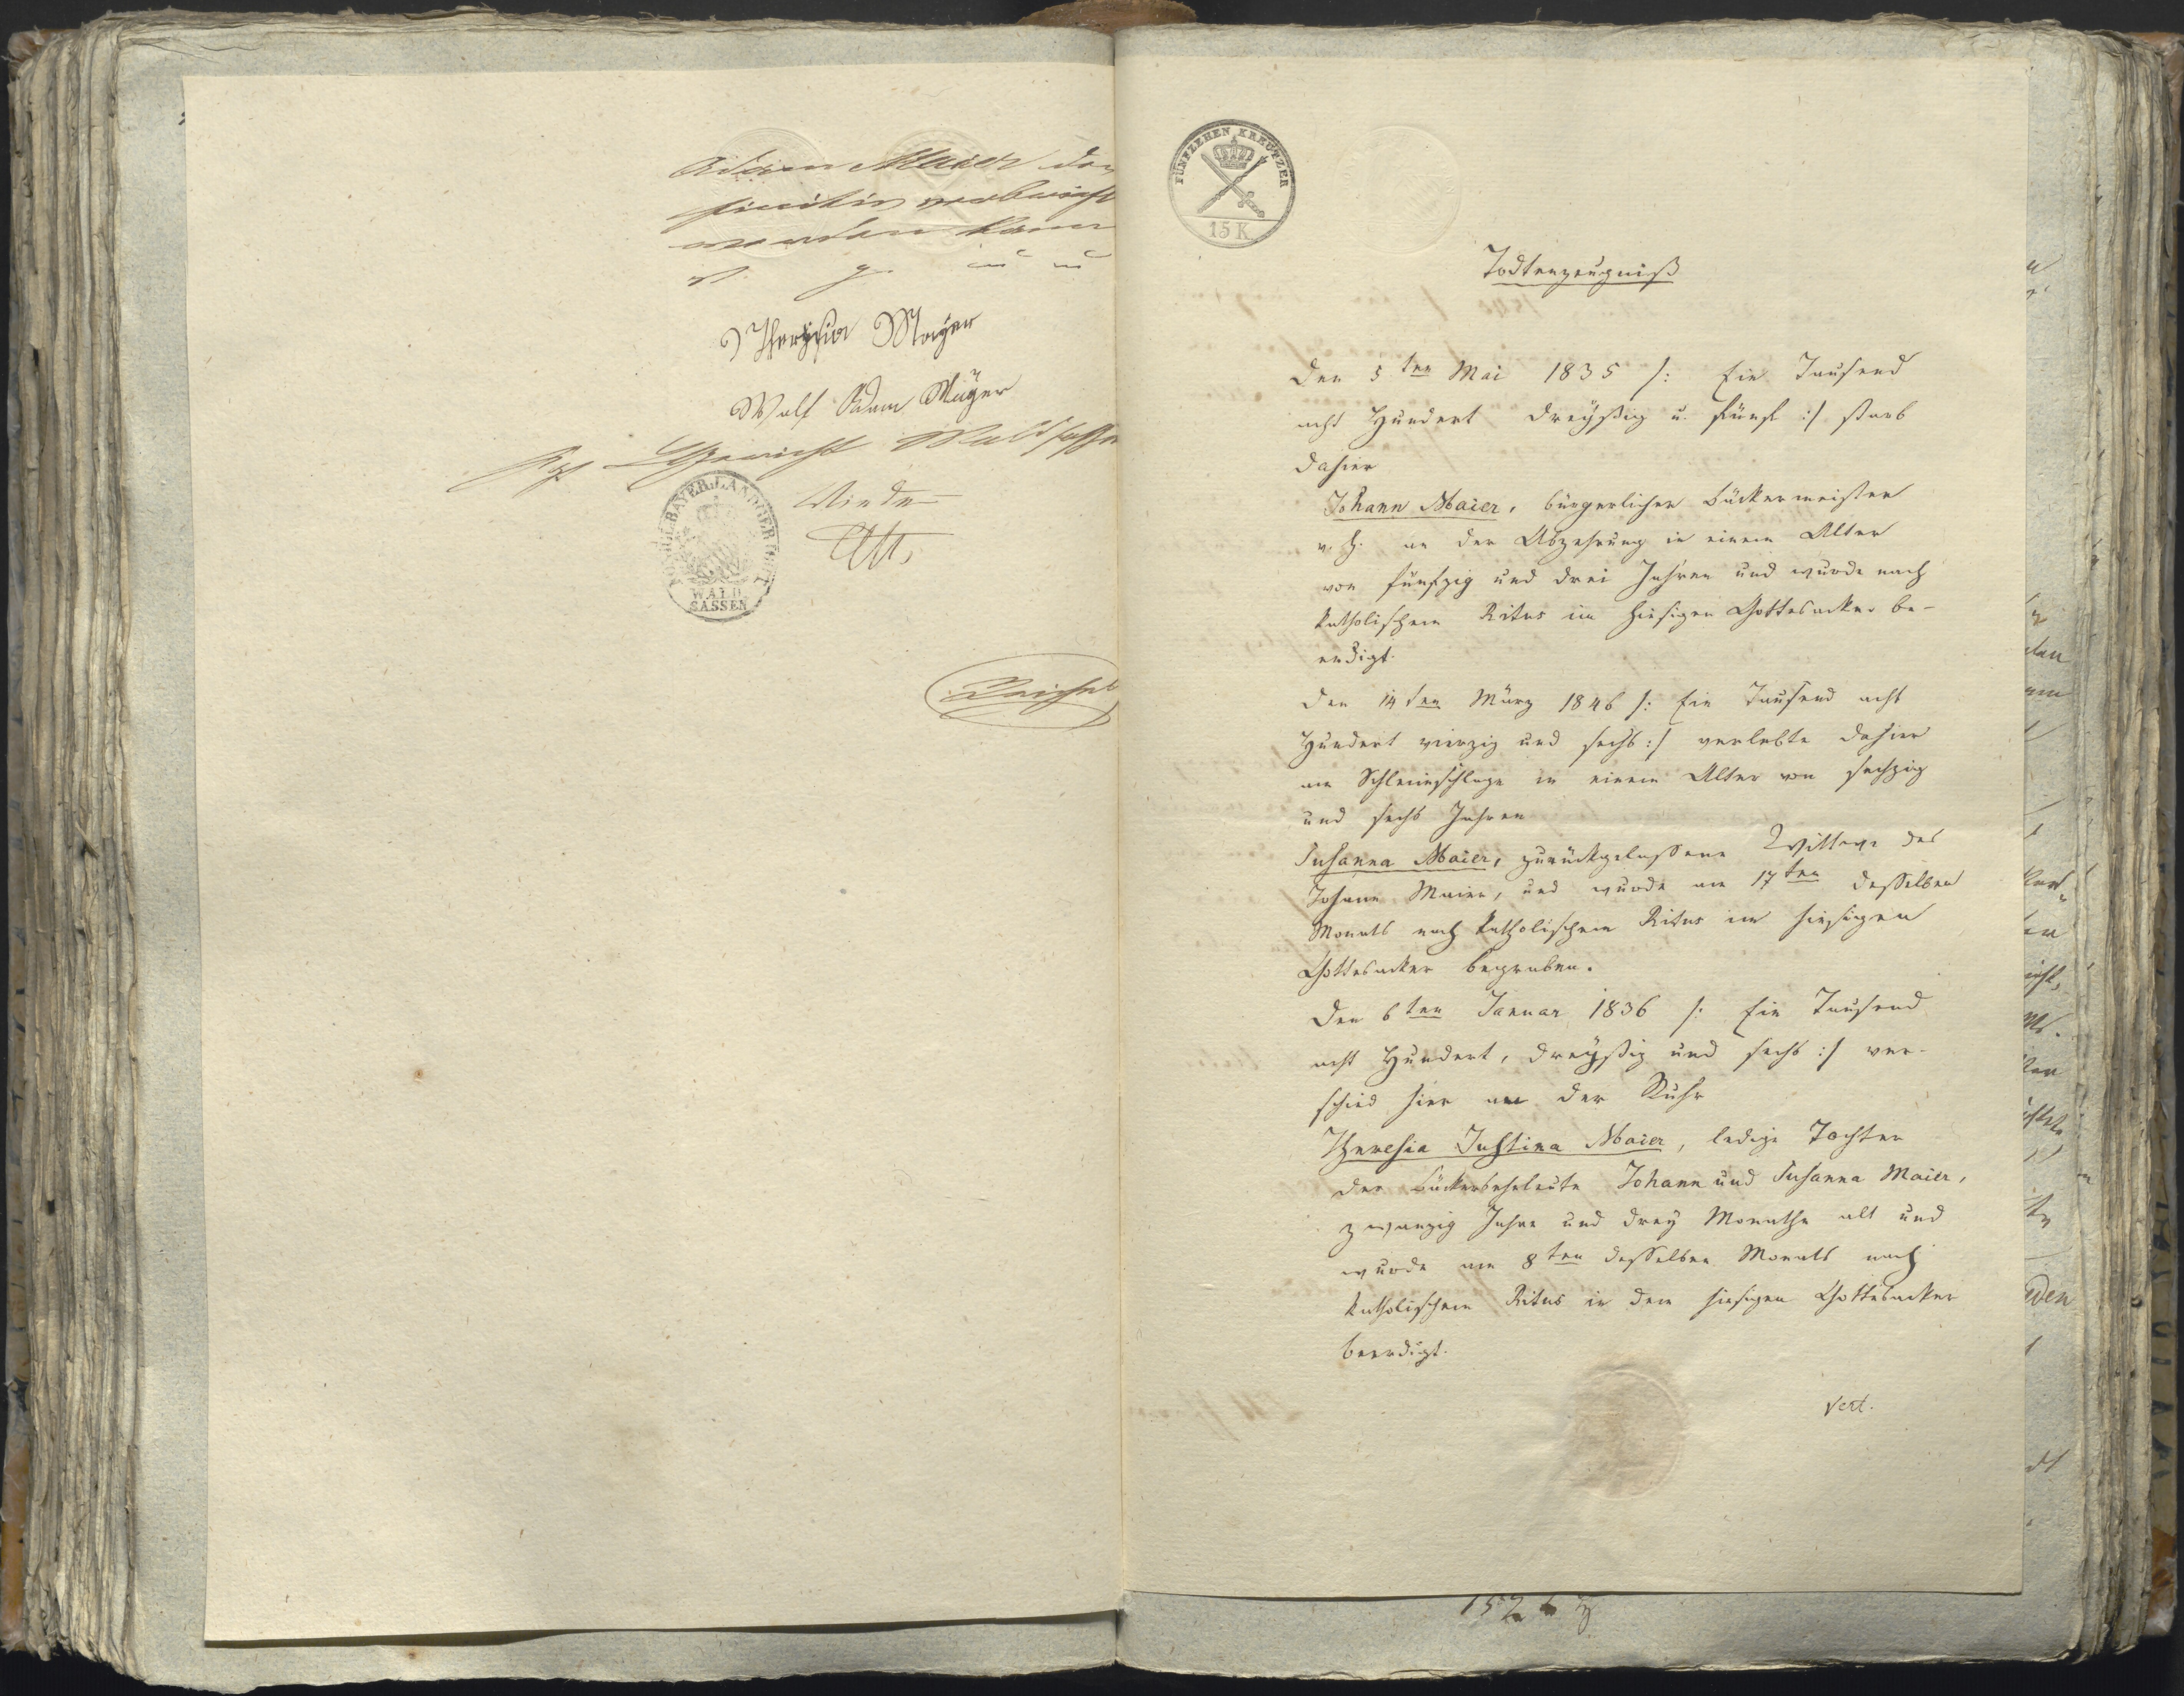 Adam Maier
werden kann
v. g. u u
Theresia Mayer
Wolf Adam Mayer
Kgl Ldgericht Waldsassen
KÖNIGL. BAYER. LANDGERICHT
WALD
SASSEN
FÜNFZEHEN KREUTZER
15 K
Todtenzeugniß
Den 5ten Mai 1835 /: Ein Tausend
acht Hundert dreyßig u. fünf :/ starb
dahier
Johann Maier, bürgerlicher Bäckermeister
v. h. an der Abzehrung in einem Alter
von fünfzig und drei Jahren und wurde nach
katholischem Ritus im hiesigen Gottesacker be-
erdigt.
Den 14ten März 1846 /: Ein Tausend acht
Hundert vierzig und sechs :/ verlebte dahier
am Schleimschlage in einem Alter von sechzig
und sechs Jahren
Susanna Maier, zurückgelassene Wittwe des
Johann Maier, und wurde am 17ten desselben
Monats nach katholischem Ritus im hiesigen
Gottesacker begraben.
Den 6ten Januar 1836 /: Ein Tausend
acht Hundert, dreyßig und sechs :/ ver-
schied hier an der Ruhr
Theresia Justina Maier, ledige Tochter
der Bäckerseheleute Johann und Susanna Maier,
zwanzig Jahre und drey Monathe alt und
wurde am 8ten desselben Monats nach
katholischem Ritus in dem hiesigen Gottesacker
beerdigt.
Vert.